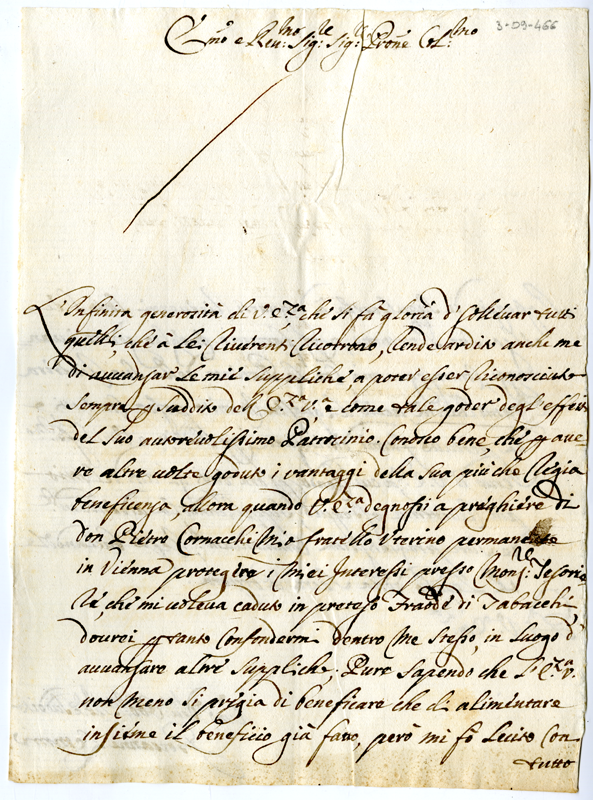 3-09-466
Emo e Reu:mo Sig:re Sig:re Prone Col:mo
L'Infinita generosità di V. E.za ché si fà gloria d'solleuar tutti
quelli, ché à Lei riuerenti ricorrono, rende ardito anche me
di auuansar le mie suppliché a poter esser riconosciuto
sempre p suddito dell'E.za V.a e come tale goder degl'effetti
del suo autoreuolissimo Patrocinio. Conosco bene, ché p aue-
re altre uolte goduto i vantaggi della sua più che Regia
beneficensa, allora quando V. E.za degnossi a preghiére di
Don Piétro Cornacchi mio fratello Vterino permanente
in Viénna protegére i miei Interessi presso Mons:re Tesorie-
ré, ché mi uoleua caduto in preteso Fraodé di Tabacchi,
dourei p tanto confondermi dentro me stesso, in luogo d'
auuansare altre suppliche; Pure sapendo che l'E.za V.
non meno si prégia di beneficare che di aliméntare
insiéme il beneficio già fatto, però mi fò lecito con
tutto